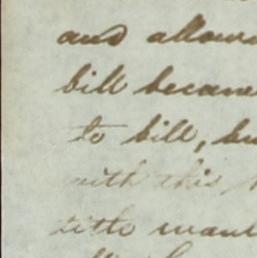 and allow
bill became
to bill, bu
with this
title wan